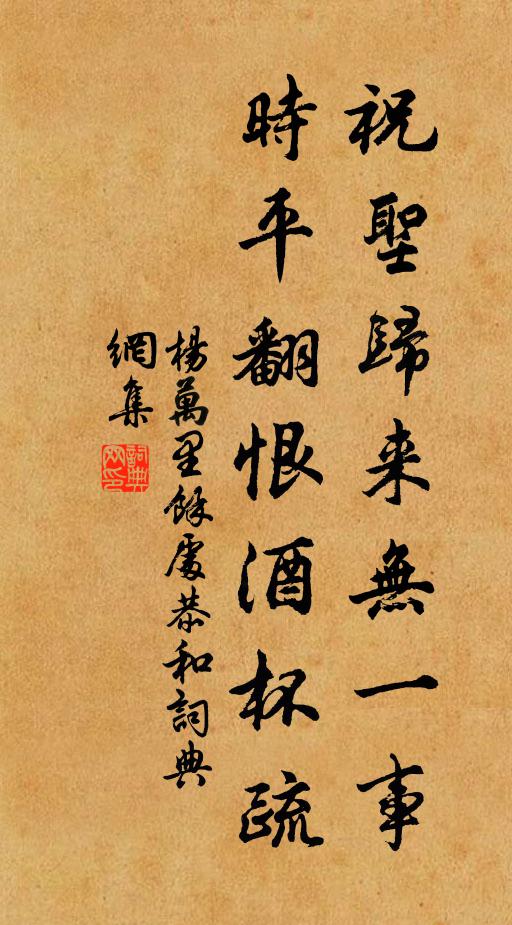 祝聖歸来無一事
時平翻恨酒杯疏
楊萬里餘處恭和詞典
網集
詞典
网印